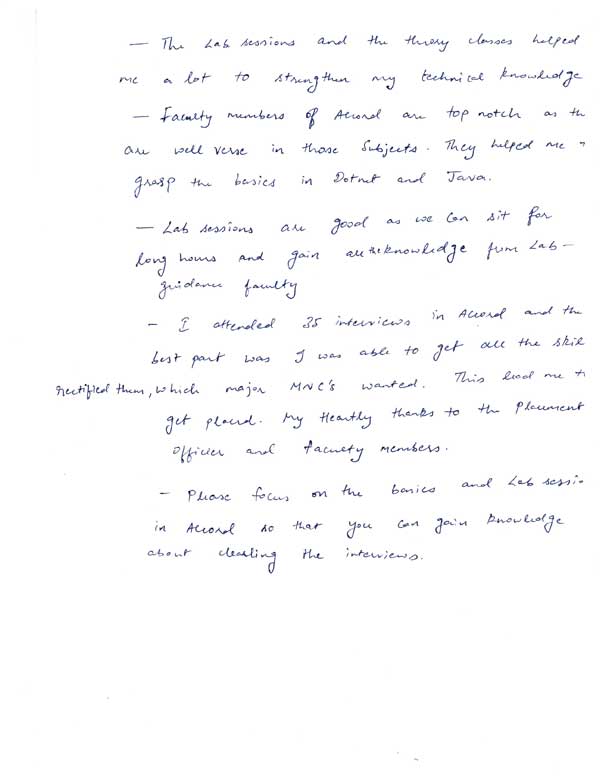 — The Lab sessions and the theory classes helped
me a lot to strengthen my technical knowledge
— Faculty members of Accord are top notch as th
are well verse in those Subjects. They helped me
grasp the basics in Dotnet and Java.
— Lab sessions are good as we can sit for
long hours and gain all the knowledge from Lab –
guidance faculty
– I attended 35 interviews in Accord and the
best part was I was able to get all the skil
rectified them, which major MNC's wanted. This lead me t
get placed. My Heartly thanks to the Placement
Officer and faculty members.
– Please focus on the basics and Lab sessio
in Accord so that you can gain knowledge
about clearing the interviews.